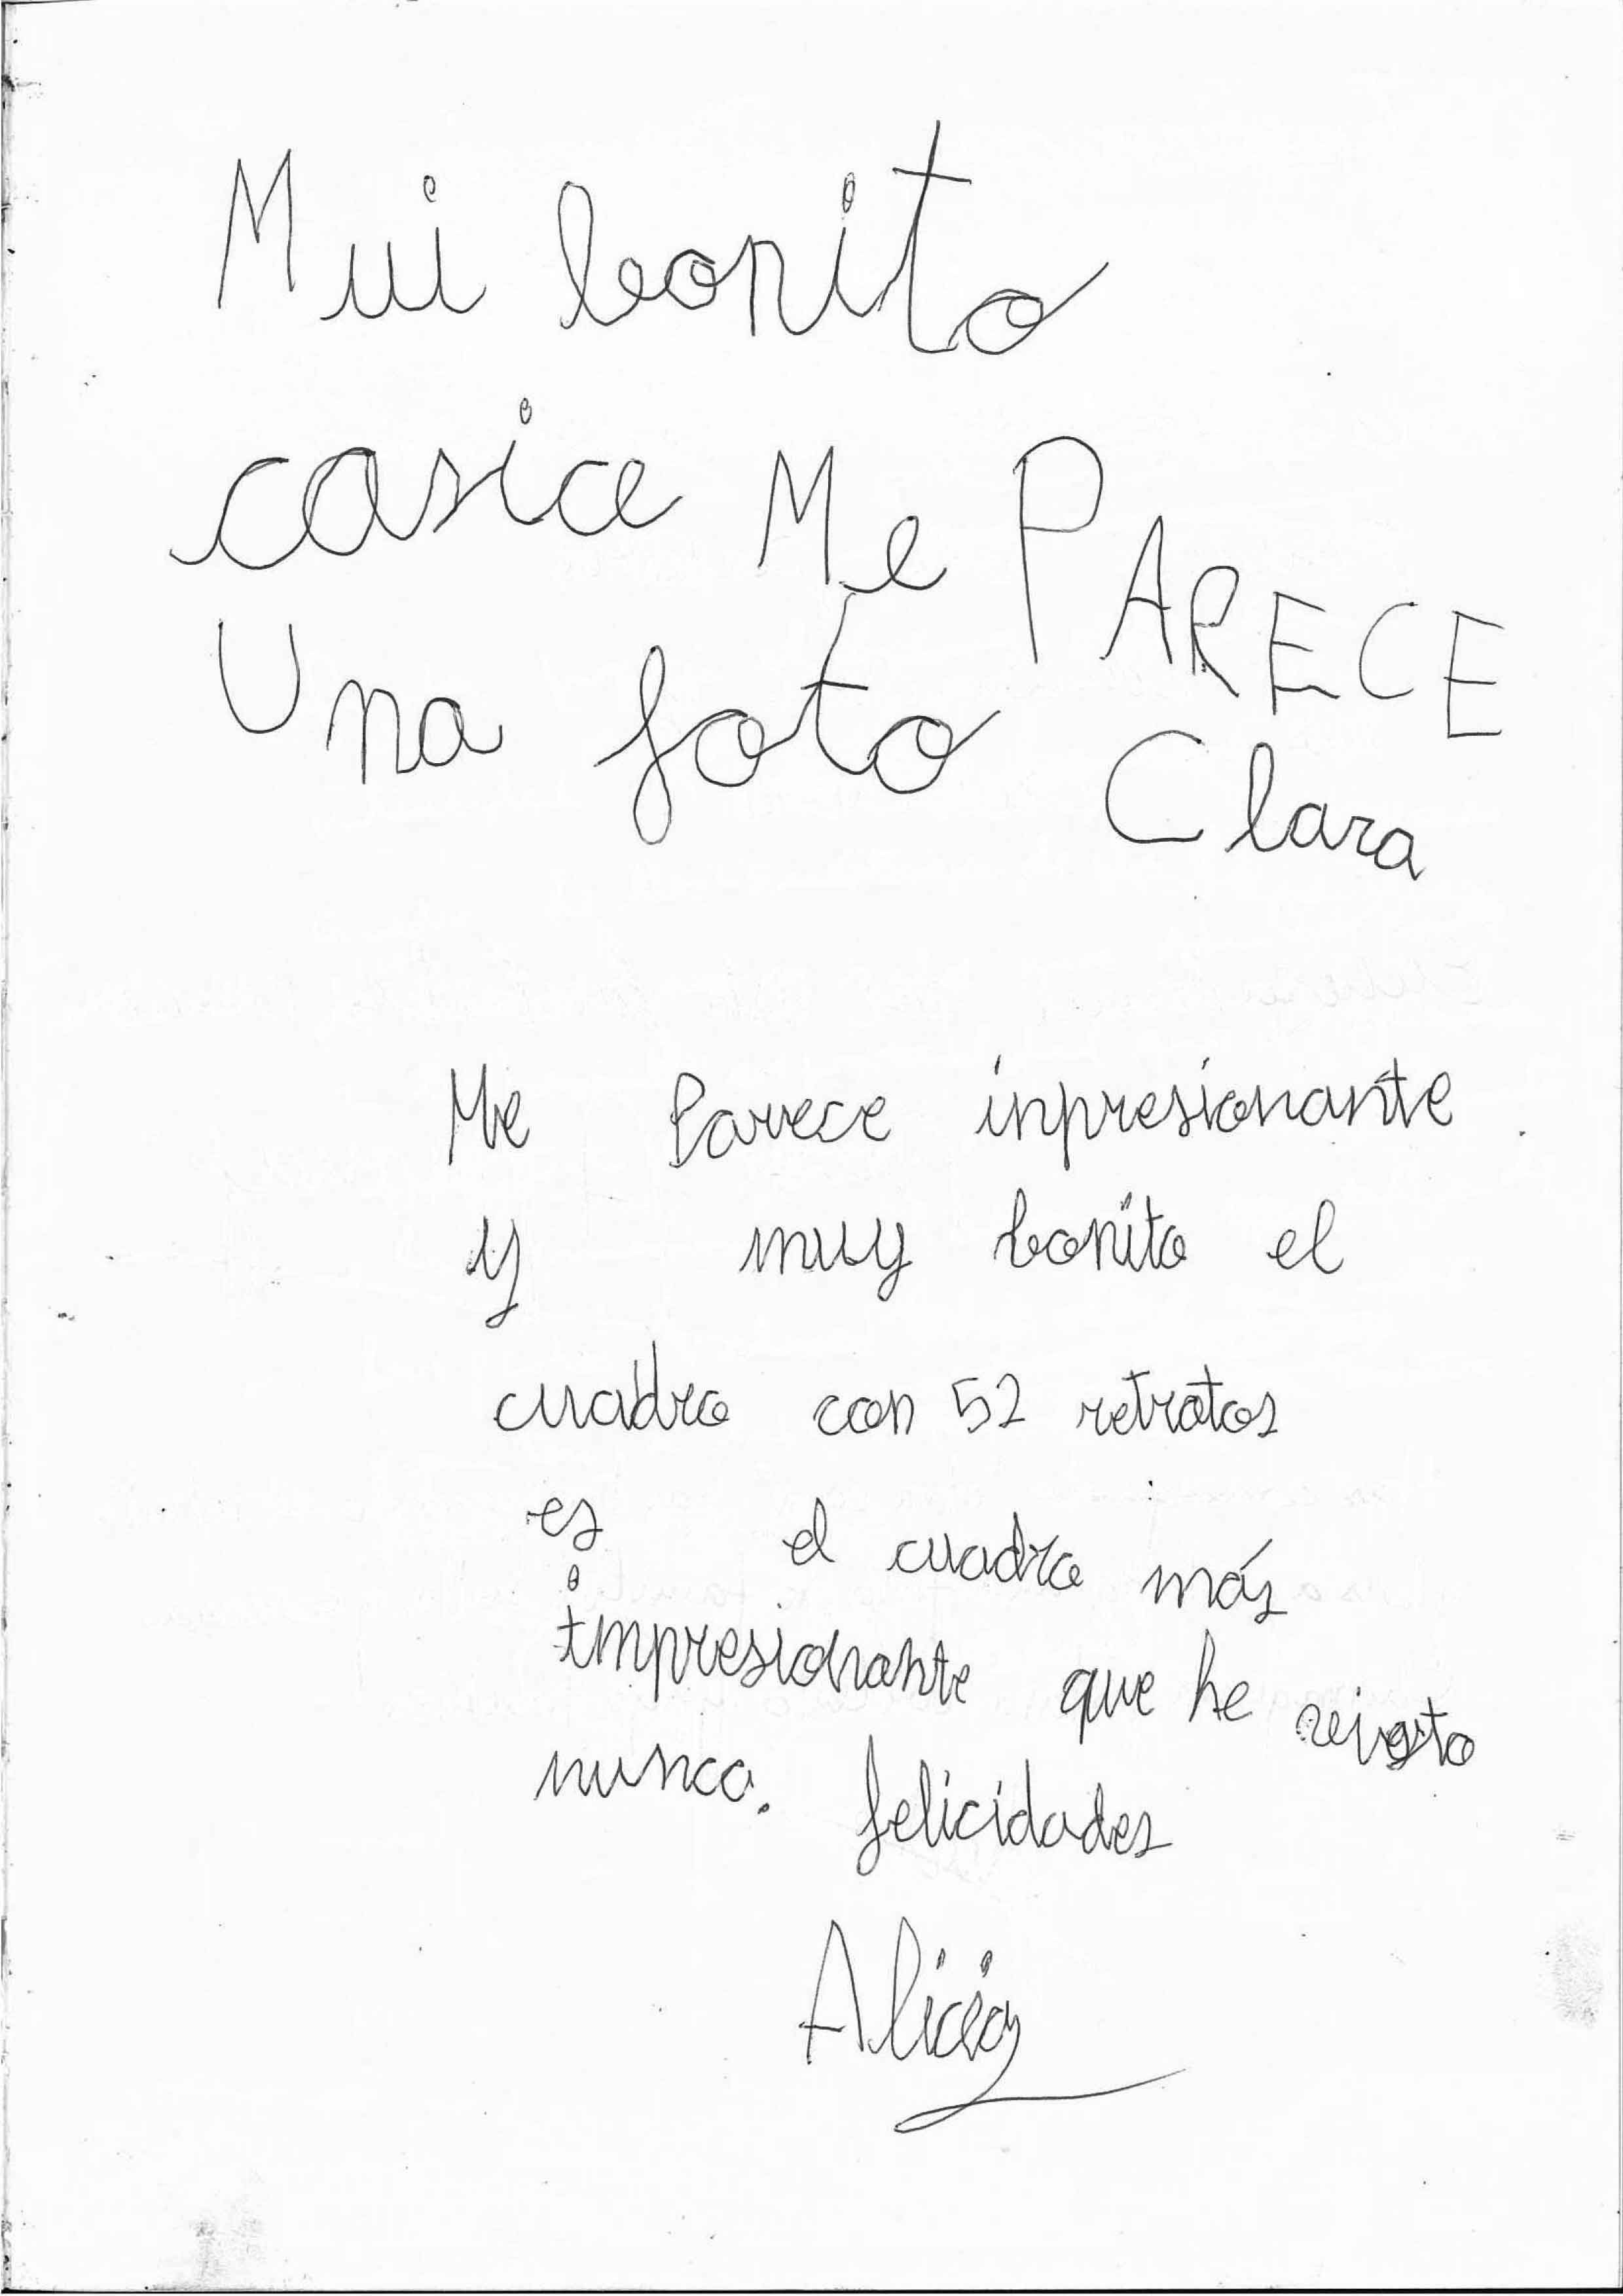 Mui bonito
casice Me PARECE
Una foto Clara
Me Parece inpresionante
y muy bonito el
cuadro con 52 retratos
es el cuadro más
impresionante que he visto
nunca. felicidades
Alicia